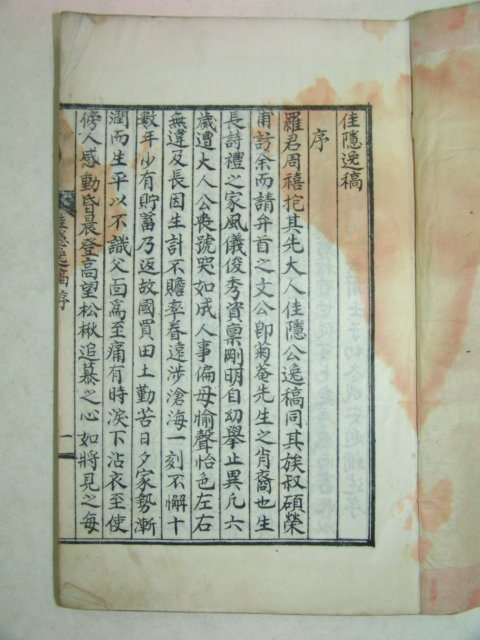 佳隱逸稿
序
羅君周禧抱其先大人佳隱公逸稿同其族叔碩榮
甫訪余而請弁首之文公卽菊菴先生之肖裔也生
長詩禮之家風儀俊秀資禀剛明自幼擧止異凡六
歲遭大人公喪號哭如成人事偏母愉聲怡色左右
無違及長因生計不贍挈眷遠涉滄海一刻不懈十
數年少有貯蓄乃返故國買田土勤苦日夕家勢漸
潤而生平以不識父面爲至痛有時淚下沾衣至使
傍人感動昏晨登高望松楸追慕之心如將見之每
佳隱逸稿序
一